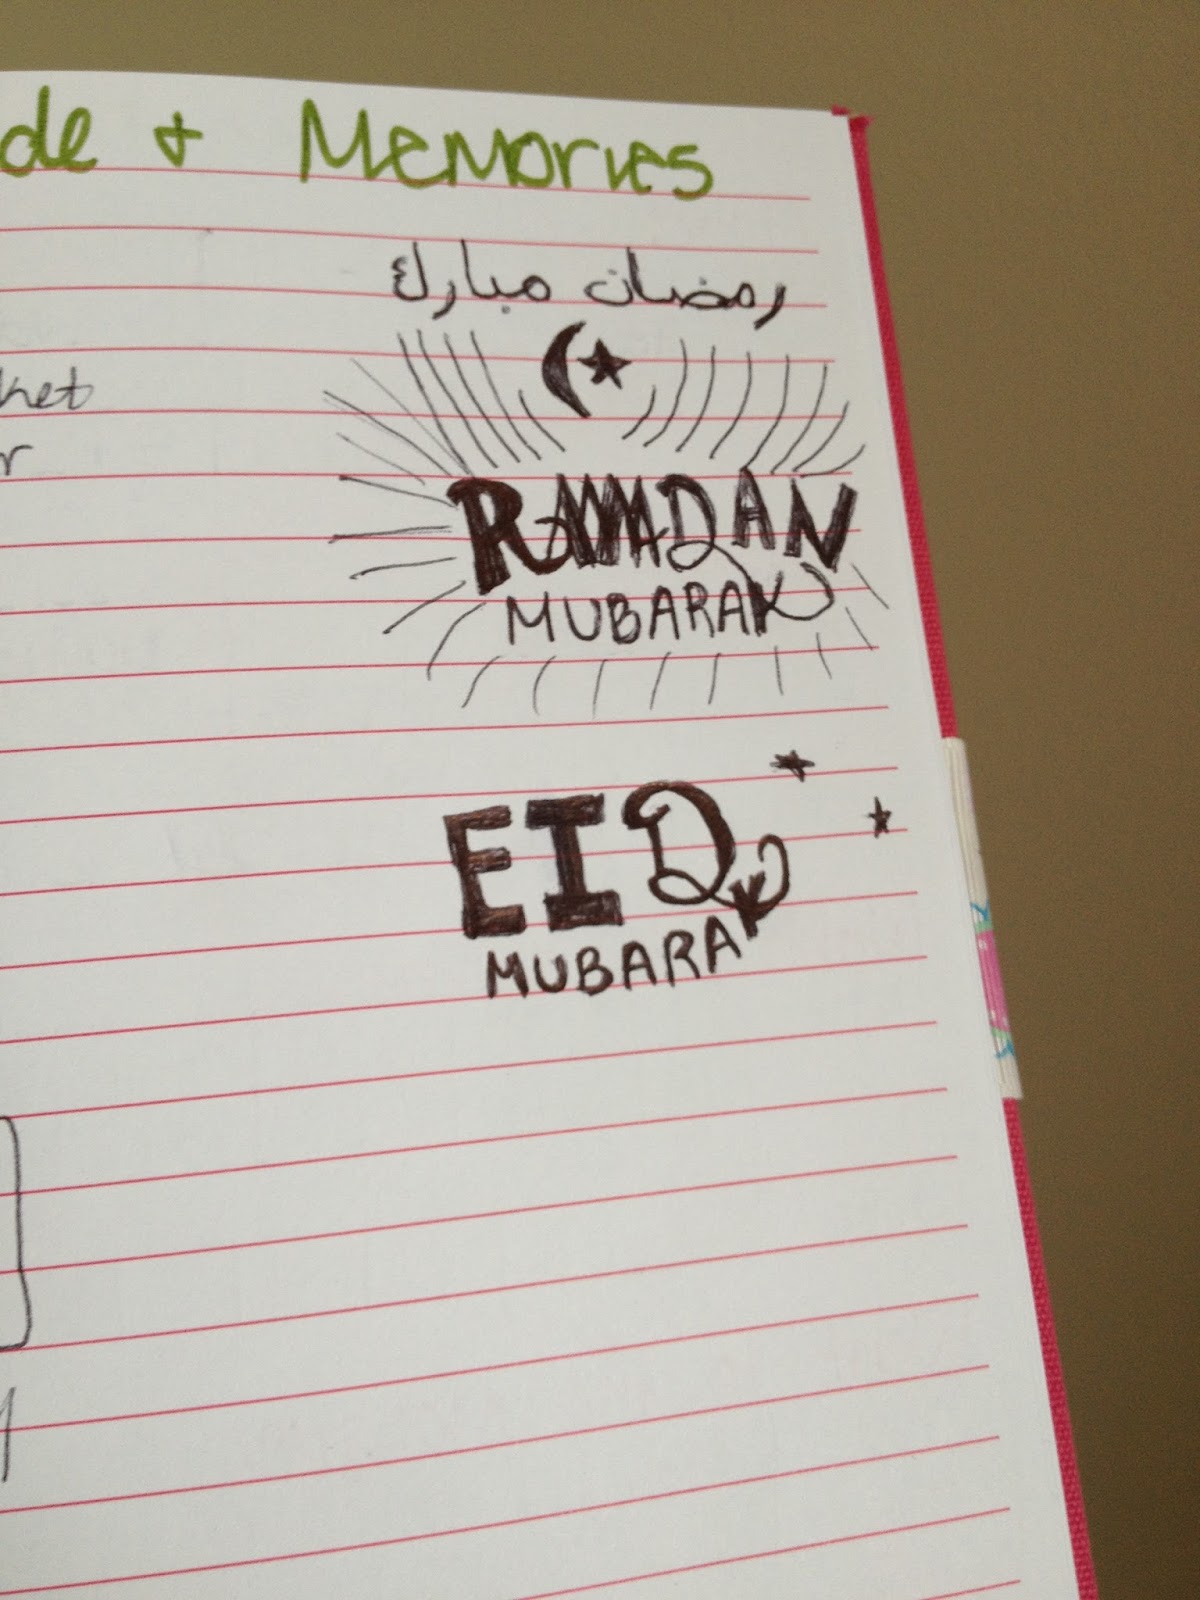 de + Memories
رمضان مبارك
RAMADAN
MUBARAK
EID
MUBARAK